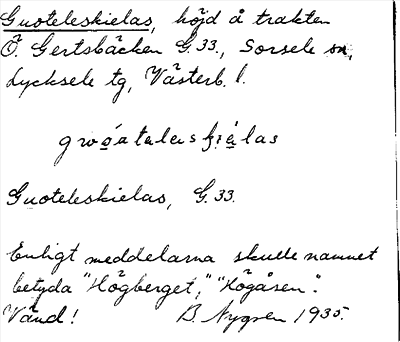 Guoteleskielas, höjd å trakten
Ö. Gertsbäcken G.33., Sorsele sn,
Lycksele tg, Västerb. l.
Guoteleskielas, G.33.
Enligt meddelarna skulle namnet
betyda "Högberget", "Högåsen".
Vänd! B. Nygren 1935.